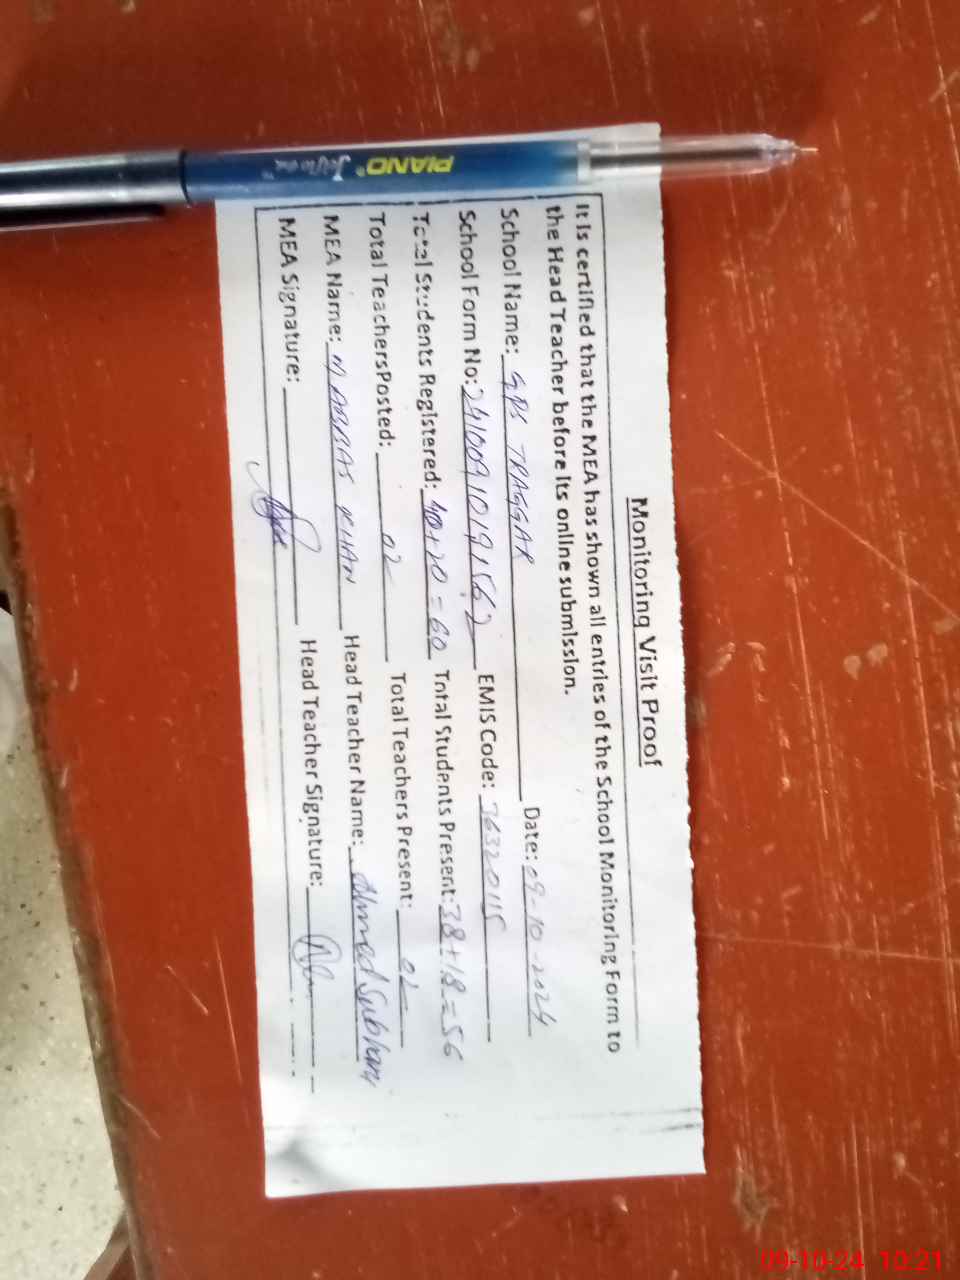 Monitoring Visit Proof
It is certified that the MEA has shown all entries of the School Monitoring Form to
the Head Teacher before its online submission.
School Name: GPS TRAGGAR Date: 09-10-2024
School Form No: 24100910191562 EMIS Code: 76320115
Total Students Registered: 40+20=60 Total Students Present: 38+18=56
Total Teachers Posted: 02 Total Teachers Present: 02
MEA Name: M ABBAS KHAN Head Teacher Name: Ahmed Subhani
MEA Signature: Head Teacher Signature:
PIANO
09-10-24 10:21